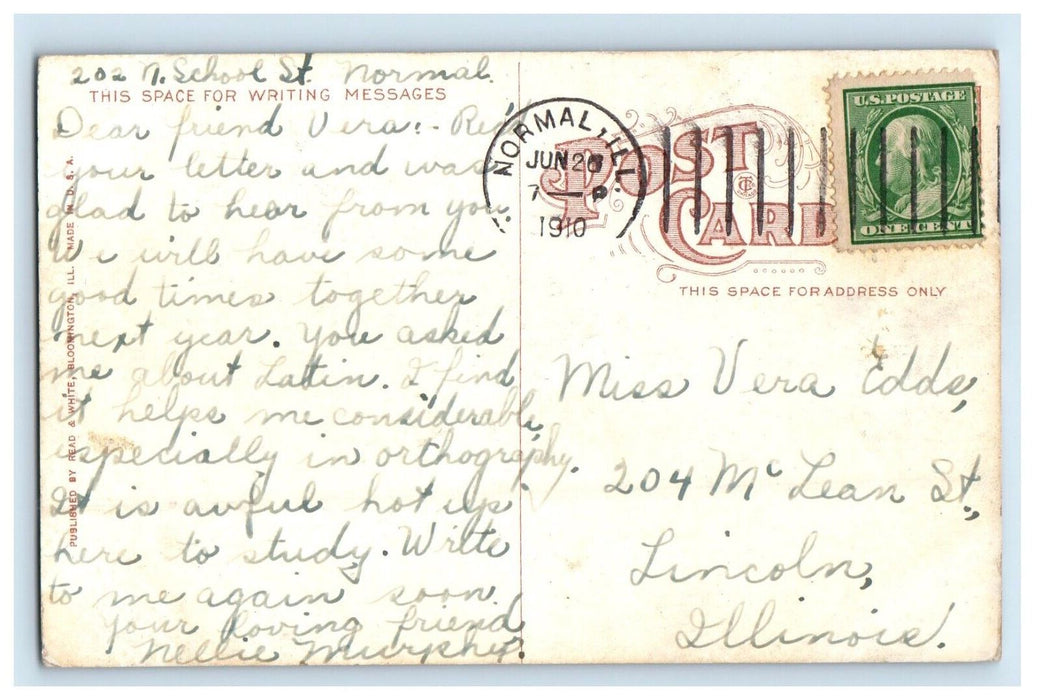 202 N. School St. Normal.
THIS SPACE FOR WRITING MESSAGES
Dear friend Vera:- Rec'd
your letter and was
glad to hear from you
We will have some
good times together
next year. You asked
me about Latin. I find
it helps me considerable,
especially in orthography.
It is awful hot up
here to study. Write
to me again soon.
Your loving friend
Nellie Murphy.
PUBLISHED BY READ & WHITE, BLOOMINGTON, ILL. MADE IN U. S. A.
NORMAL, ILL.
JUN 20
7 — P
1910
POST
CARD
U.S. POSTAGE
ONE CENT
THIS SPACE FOR ADDRESS ONLY
Miss Vera Edds,
204 McLean St,
Lincoln,
Illinois.